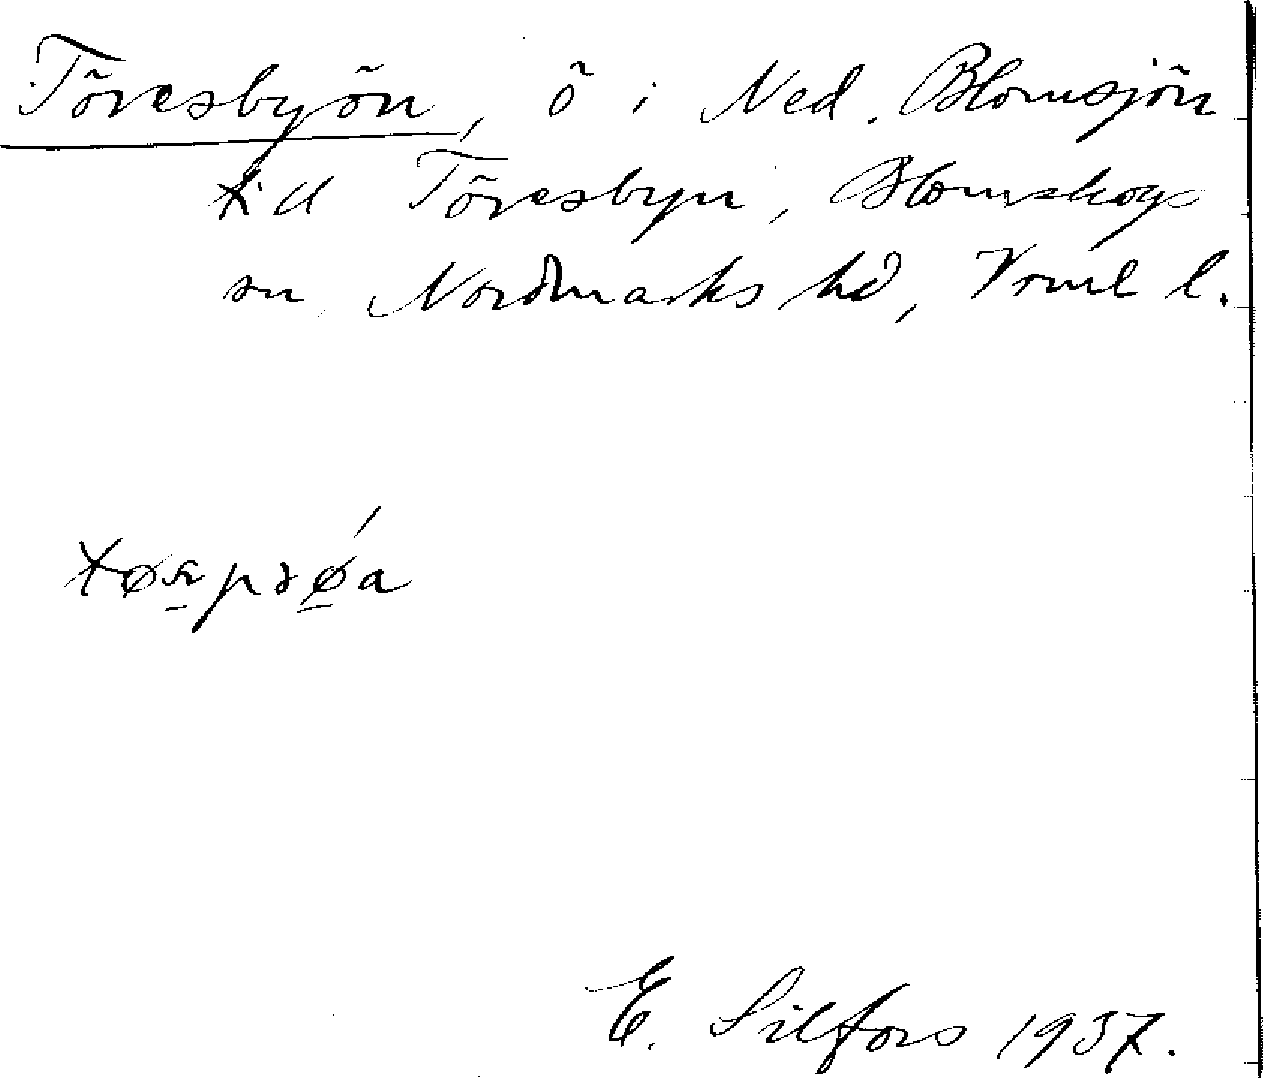 Töresbyön, ö i Ned. Blomsjön
till Töresbyn, Blomskogs
sn, Nordmarks hd, Vrml l.
E. Silfors 1937.